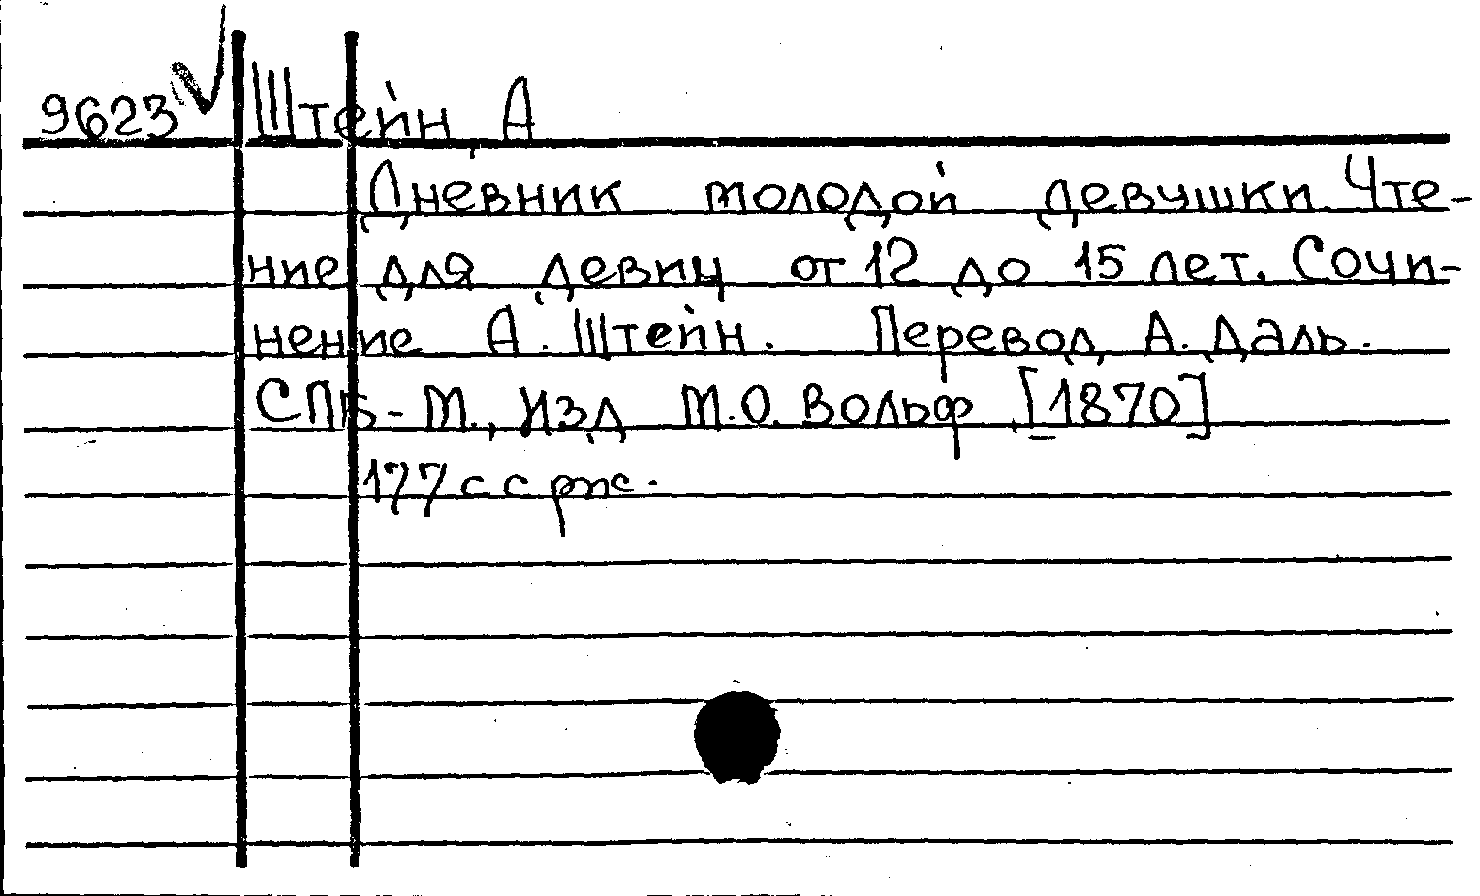 9623 Штейн, А
Дневник молодой девушки. Чте-
ние для девиц от 12 до 15 лет. Сочи-
нение А. Штейн. Перевод А. Даль.
СПб-М., Изд М.О. Вольф, [1870]
177 с с рис.